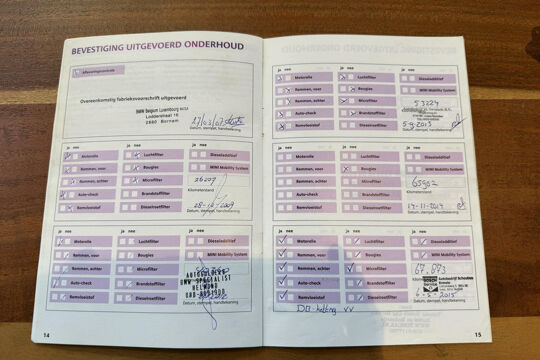 BEVESTIGING UITGEVOERD ONDERHOUD
ja nee
Afleveringscontrole
Overeenkomstig fabrieksvoorschrift uitgevoerd
BMW Belgium Luxembourg
Lodderstraat 16
2880 Bornem
Datum, stempel, handtekening
ja nee ja nee ja nee
Motorolie Luchtfilter Dieseladditief
Remmen, voor Bougies MINI Mobility System
Remmen, achter Microfilter 26209
Auto-check Brandstoffilter Kilometerstand
Remvloeistof Dieselroetfilter 28-10-2009
Datum, stempel, handtekening
ja nee ja nee ja nee
Motorolie Luchtfilter Dieseladditief
Remmen, voor Bougies MINI Mobility System
Remmen, achter Microfilter
Auto-check Brandstoffilter
Remvloeistof Dieselroetfilter
BMW SPECIALIST
HELMOND
Datum, stempel, handtekening
14
ja nee ja nee ja nee
Motorolie Luchtfilter Dieseladditief
Remmen, voor Bougies MINI Mobility System
Remmen, achter Microfilter 53229
Auto-check Brandstoffilter
Remvloeistof Dieselroetfilter
Datum, stempel, handtekening
ja nee ja nee ja nee
Motorolie Luchtfilter Dieseladditief
Remmen, voor Bougies MINI Mobility System
Remmen, achter Microfilter 65902
Auto-check Brandstoffilter Kilometerstand
Remvloeistof Dieselroetfilter
Datum, stempel, handtekening
ja nee ja nee ja nee
Motorolie Luchtfilter Dieseladditief
Remmen, voor Bougies MINI Mobility System
Remmen, achter Microfilter 67.673
Auto-check Brandstoffilter
Remvloeistof Dieselroetfilter
BOSCH
Service
6-5-2015
Datum, stempel, handtekening
15